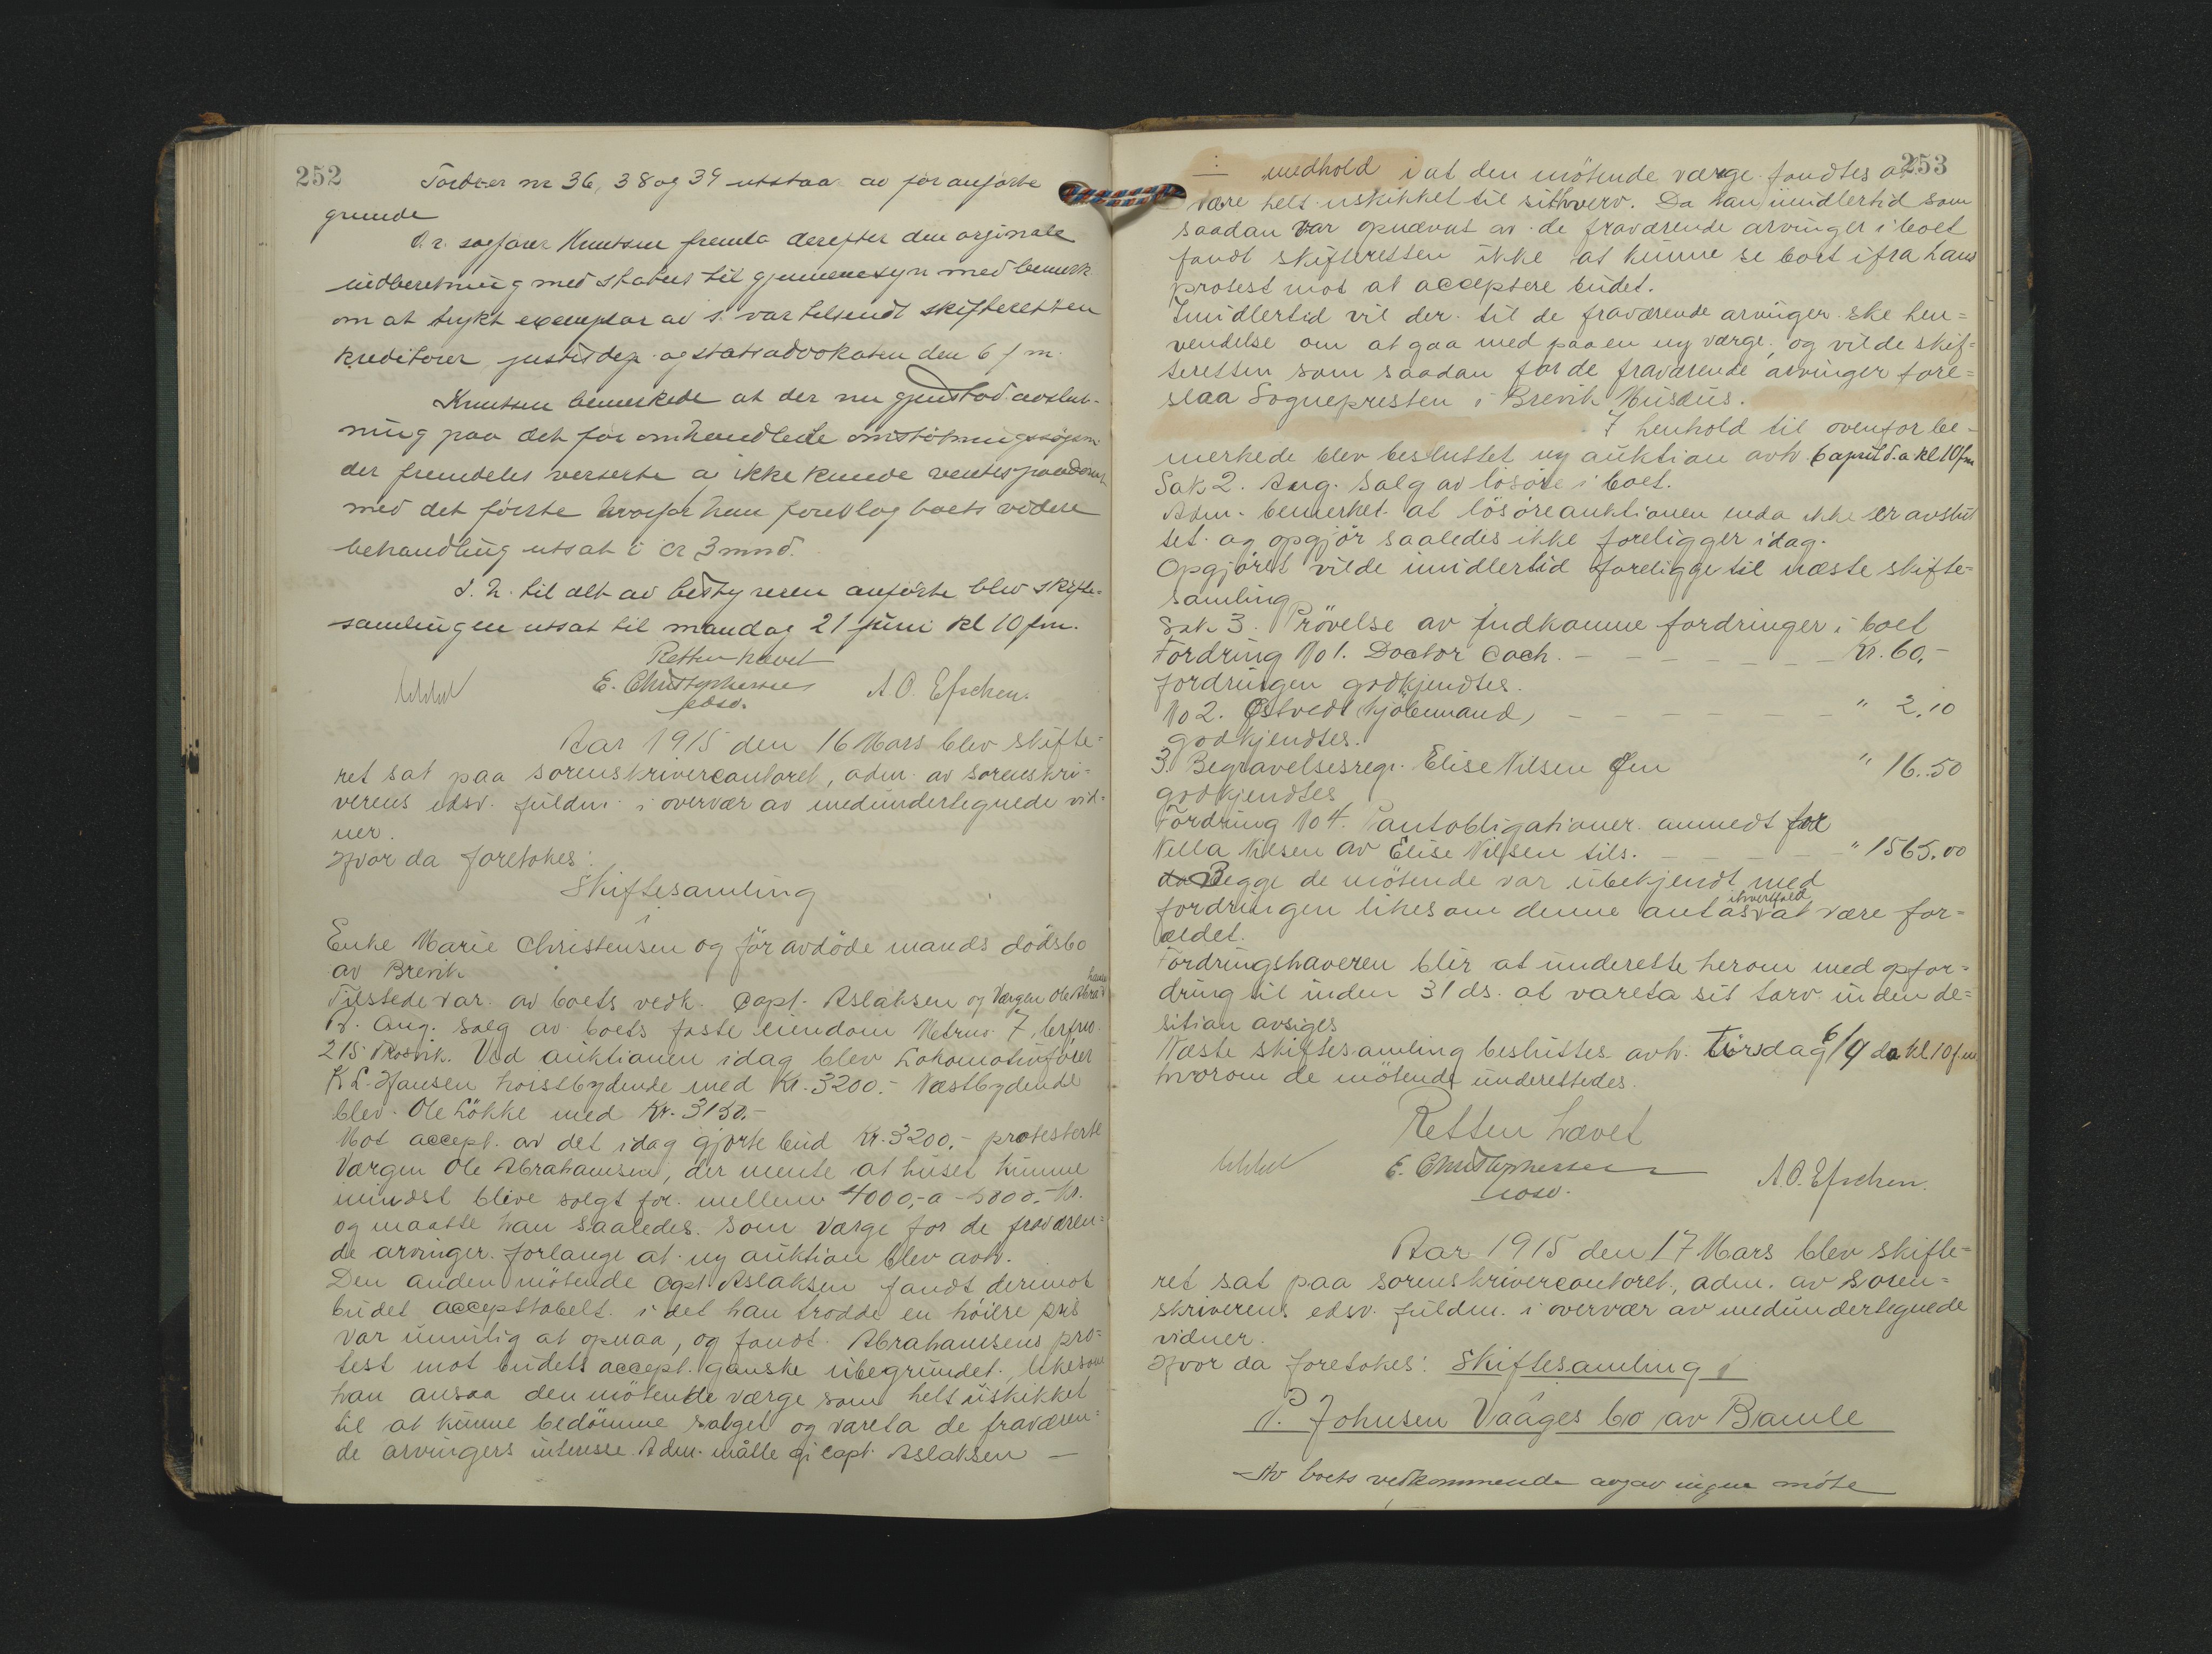 252
Fordr.er nr 36, 38 og 39 utstaa av før anførte
grunde
O.r. sagfører Knutsen fremla derefter den orginale
indberetning med status til gjennemsyn med bemerk.
om at trykt exemplar av s. var tilsendt skifteretten
kreditorer justisdep. og statsadvokaten den 6 f m.
Knutsen bemerkede at der nu gjenstod avslut-
ning paa det før omhandlede omstøtningssøgsm.
der fremdeles verserte og ikke kunde ventes paadømt
med det første hvorfor han foreslog boets videre
behandling utsat i ca 3 mnd.
I. h. til alt av bestyreren anførte blev skifte-
samlingen utsat til mandag 21 juni kl 10 fm.
Retten hævet
E. Christophersen A. O. Efschen.
edsv.
Aar 1915 den 16 Mars blev skifte-
ret sat paa sorenskrivercontoret, adm. av sorenskri-
verens edsv. fuldm. i overvær av medundertegnede vid-
ner.
Hvor da foretokes:
Skiftesamling
i
Enke Marie Christensen og før avdöde mands dödsbo
av Brevik
Tilstede var av boets vedk. Capt. Aslaksen og Værgen Ole Abra-
hamsen
Ang. salg av boets faste eiendom Matrnr 7 brfno
215 Trosvik. Ved auktionen idag blev Lokomotivfører
K L. Hansen höistbydende med Kr. 3200.- Næstbydende
blev Ole Lökke med Kr. 3150.-
Mot accept. av det idag gjorte bud Kr. 3200.- protesterte
Værgen Ole Abrahamsen, der mente at huset kunne
mindst blive solgt for mellem 4000,- a -5000.- kr.
og maatte han saaledes som værge for de fraværen-
de arvinger forlange at ny auktion blev avh.
Den anden mötende Capt. Aslaksen fandt derimot
budet acceptabelt i det han trodde en höiere pris
var umulig at opnaa, og fandt Abrahamsens pro-
test mot budets accept ganske ubegrundet, likesom
han ansaa den mötende værge som helt uskikket
til at kunne bedömme salget og vareta de fraværen-
de arvingers interesse. Adm. måtte gi capt. Aslaksen —
253
— medhold i at den mötende værge fandtes at
være helt uskikket til sit hverv. Da han imidlertid som
saadan var opnævnt av de fraværende arvinger i boet
fandt skifteretten ikke at kunne se bort ifra hans
protest mot at acceptere budet.
Imidlertid vil der til de fraværende arvinger ske hen-
vendelse om at gaa med paa en ny værge, og vilde skif-
teretten som saadan for de fraværende arvinger fore-
slaa Sognepresten i Brevik Musæus.
I henhold til ovenfor be-
merkede blev besluttet ny auktion avh. 6 april d.a. kl 10 fm
Sak 2. Ang. Salg av lösöre i boet.
Adm. bemerket at lösöreauktionen enda ikke er avslut
tet og opgjör saaledes ikke foreligger idag.
Opgjöret vilde imidlertid foreligge til næste skifte-
samling
Sak 3. Prövelse av Indkomne fordringer i boet
Fordring No 1. Doctor Coch. — — — — Kr. 60,-
fordringen godkjendtes.
No 2. Østvedt (kjöbmand) — — — — " 2.10
godkjendtes.
3. Begravelsesregn. Elise Nilsen Øen " 16.50
godkjendtes
Fordring No 4. Pantobligationer anmedt for
Nella Nilsen av Elise Nilsen tils. — — — " 1565.00
da Begge de mötende var ubekjendt med
ihvertfald
fordringen likesom denne antas at være for-
ældet.
Fordringshaveren blir at underette herom med opfor-
dring til inden 31 ds. at vareta sit tarv inden de-
sition avsiges
Næste skiftesamling besluttes avh. Tirsdag 6/4 da kl 10 fm
hvorom de mötende underettedes.
Retten hævet
E. Christophersen A. O. Efschen.
edsv.
Aar 1915 den 17 Mars blev skifte-
ret sat paa sorenskrivercontoret, adm. av Soren-
skriverens edsv. fuldm. i overvær av medundertegnede
vidner.
Hvor da foretokes: Skiftesamling i
P. Johnsen Vaåges bo av Bamle
Av boets vedkommende avgav ingen möte